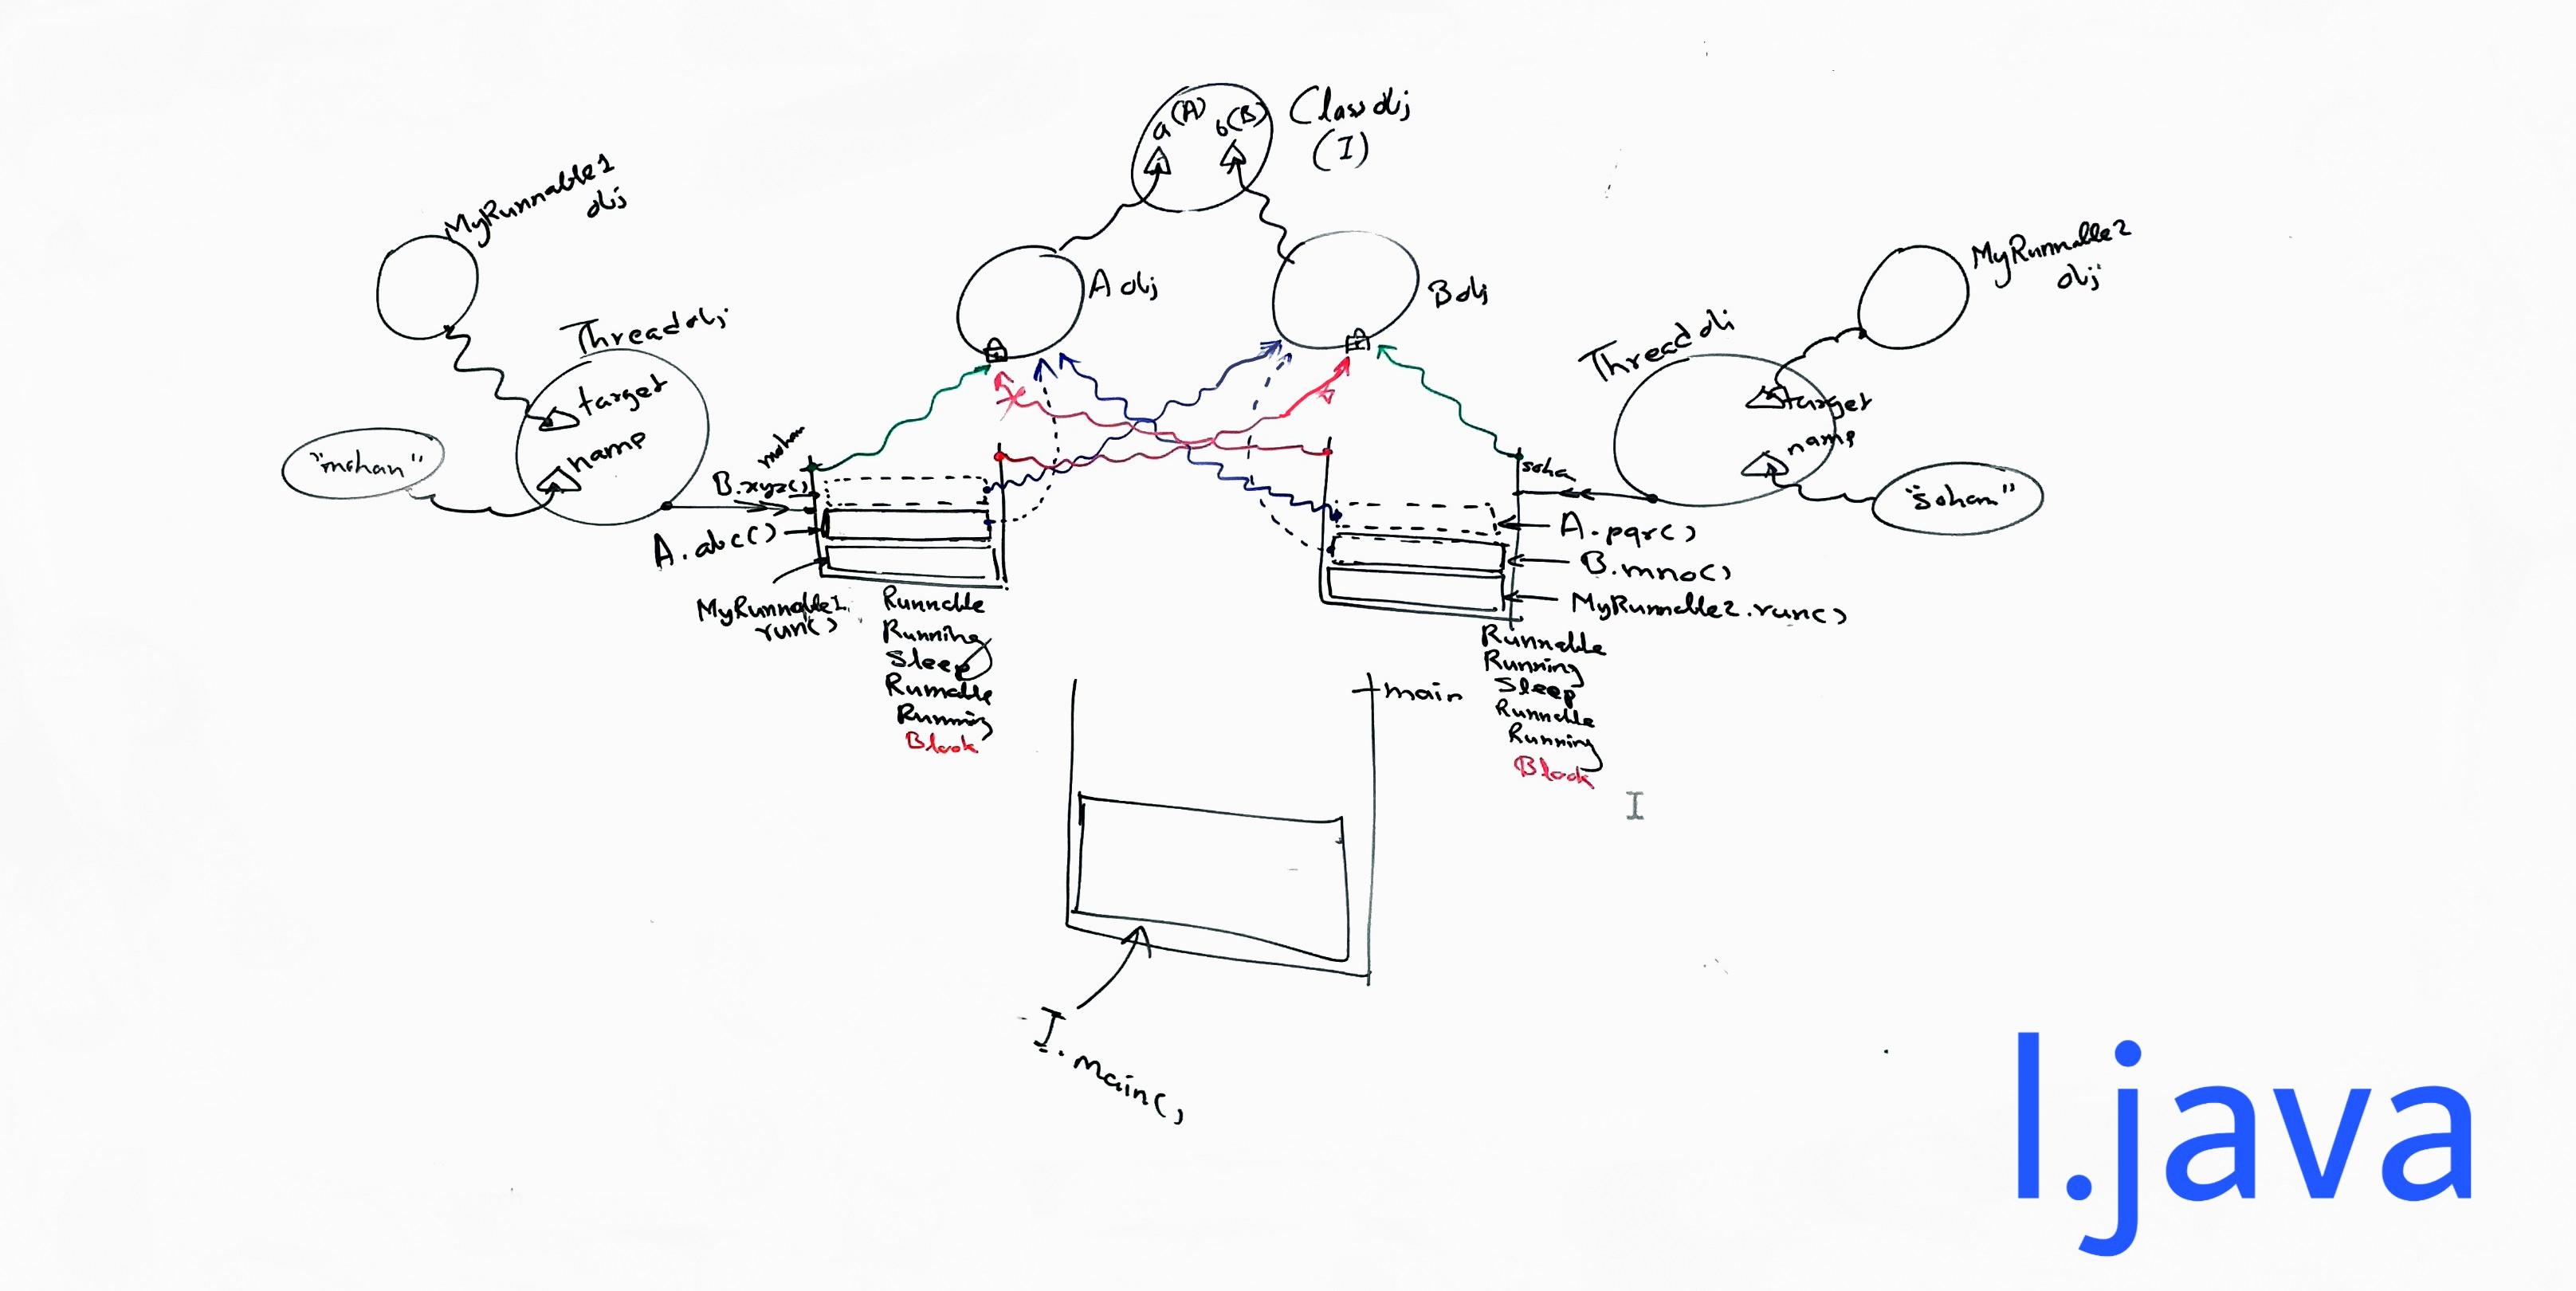 a(A) b(B)
Class obj
(I)
MyRunnable1
obj
A obj
B obj
MyRunnable2
obj
Thread obj
target
name
"mohan"
Thread obj
target
name
"soham"
mohan
B.xyz()
A.abc()
MyRunnable1.
run()
Runnable
Running
Sleep
Runnable
Running
Block
soha
A.pqr()
B.mno()
MyRunnable2.run()
Runnable
Running
Sleep
Runnable
Running
Block
main
I.main()
I.java